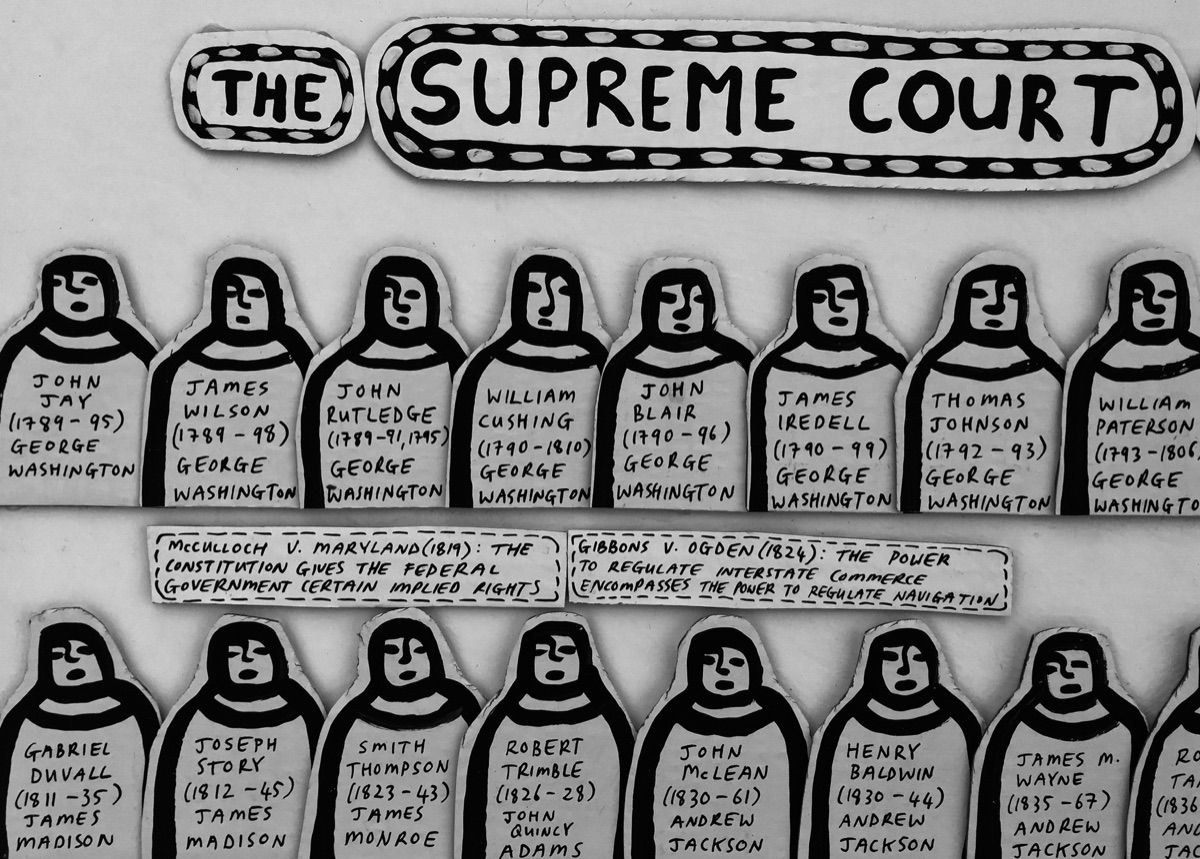 THE
SUPREME COURT
JOHN
JAY
(1789 - 95)
GEORGE
WASHINGTON
JAMES
WILSON
(1789 - 98)
GEORGE
WASHINGTON
JOHN
RUTLEDGE
(1789-91, 1795)
GEORGE
WASHINGTON
WILLIAM
CUSHING
(1790 - 1810)
GEORGE
WASHINGTON
JOHN
BLAIR
(1790 - 96)
GEORGE
WASHINGTON
JAMES
IREDELL
(1790 - 99)
GEORGE
WASHINGTON
THOMAS
JOHNSON
(1792 - 93)
GEORGE
WASHINGTON
WILLIAM
PATERSON
(1793 - 1806
GEORGE
WASHINGTO
McCULLOCH V. MARYLAND (1819): THE
CONSTITUTION GIVES THE FEDERAL
GOVERNMENT CERTAIN IMPLIED RIGHTS
GIBBONS V. OGDEN (1824): THE POWER
TO REGULATE INTERSTATE COMMERCE
ENCOMPASSES THE POWER TO REGULATE NAVIGATION
GABRIEL
DUVALL
(1811 - 35)
JAMES
MADISON
JOSEPH
STORY
(1812 - 45)
JAMES
MADISON
SMITH
THOMPSON
(1823 - 43)
JAMES
MONROE
ROBERT
TRIMBLE
(1826 - 28)
JOHN
QUINCY
ADAMS
JOHN
McLEAN
(1830 - 61)
ANDREW
JACKSON
HENRY
BALDWIN
(1830 - 44)
ANDREW
JACKSON
JAMES M.
WAYNE
(1835 - 67)
ANDREW
JACKSON
RO
TA
(1836
AN
JAC